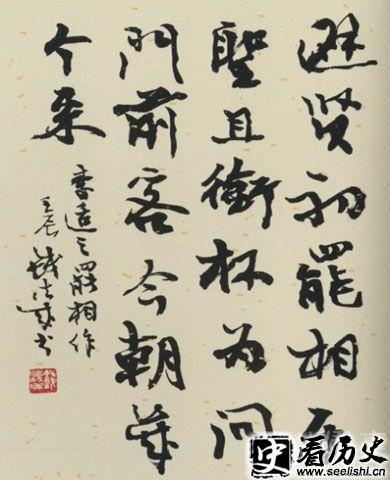 避贤初罷相乐
聖且銜杯为问
門前客今朝幾
个来
李适之罷相作
壬辰 钱法成书
史 看历史
www.seelishi.com